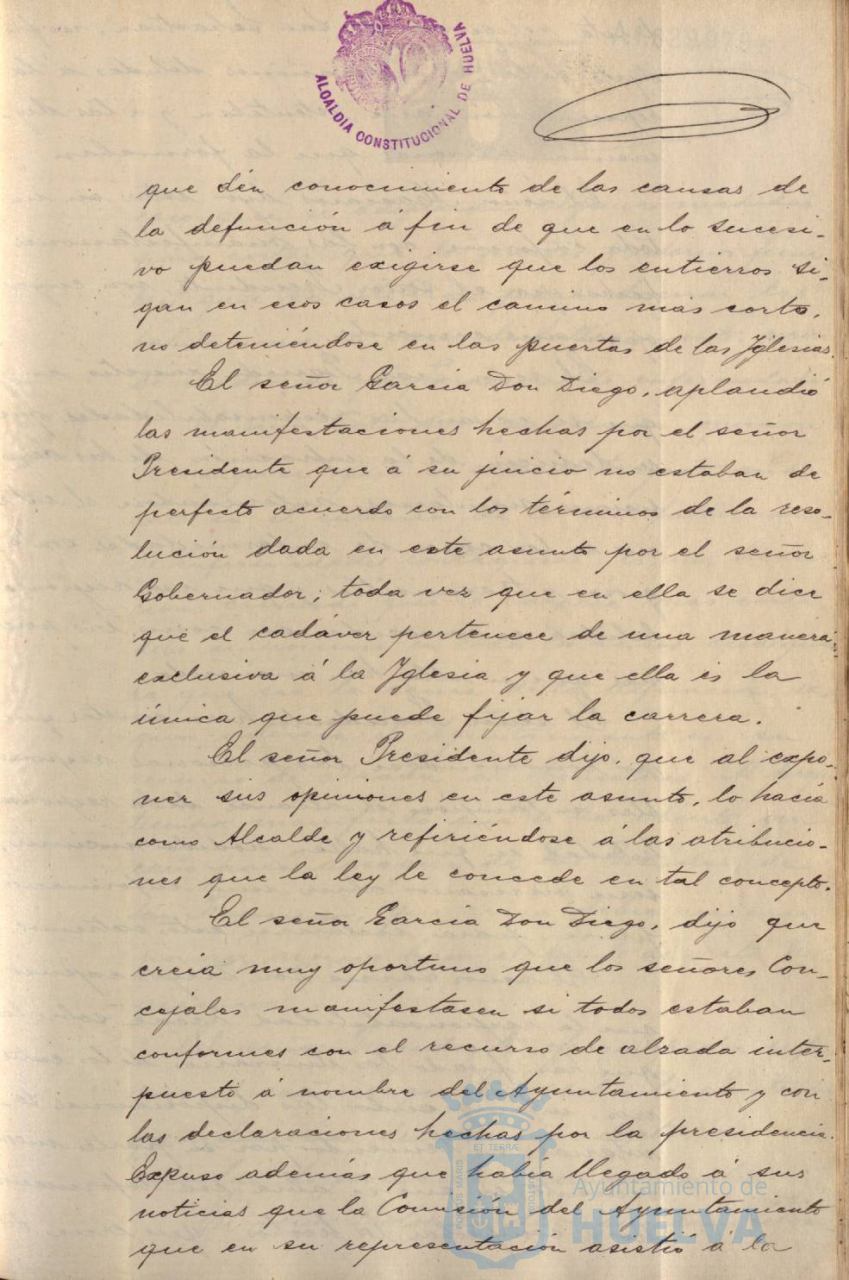 ALCALDIA CONSTITUCIONAL DE HUELVA
que dén conocimiento de las causas de
la defunción á fin de que en lo sucesi-
vo puedan exigirse que los entierros si-
gan en esos casos el camino mas corto,
no deteniéndose en las puertas de las Yglesias.
El señor García Don Diego, aplaudió
las manifestaciones hechas por el señor
Presidente que á su juicio no estaban de
perfecto acuerdo con los términos de la reso-
lución dada en este asunto por el señor
Gobernador; toda vez que en ella se dice
que el cadáver pertenece de una manera
exclusiva á la Yglesia y que ella es la
única que puede fijar la carrera.
El señor Presidente dijo, que al expo-
ner sus opiniones en este asunto, lo hacía
como Alcalde y refiriéndose á las atribucio-
nes que la ley le concede en tal concepto.
El señor García Don Diego, dijo que
creia muy oportuno que los señores Con-
cejales manifestasen si todos estaban
conformes con el recurso de alzada inter-
puesto á nombre del Ayuntamiento y con
las declaraciones hechas por la presidencia.
Expuso además que había llegado á sus
noticias que la Comisión del Ayuntamiento
que en su representación asistió á la
Ayuntamiento de
HUELVA